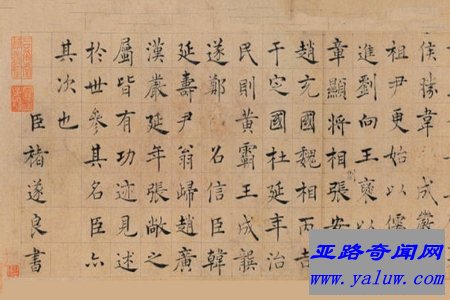 侯勝韋成嚴
祖尹更始以儒
進劉向王褒以
章顯將相則張安
趙充國魏相丙吉
于定國杜延年治
民則黃霸王成龔
遂鄭召信臣韓
延壽尹翁歸趙廣
漢嚴延年張敞之
屬皆有功迹見述
於世參其名臣亦
其次也
臣褚遂良書
亚路奇闻网
www.yaluw.com